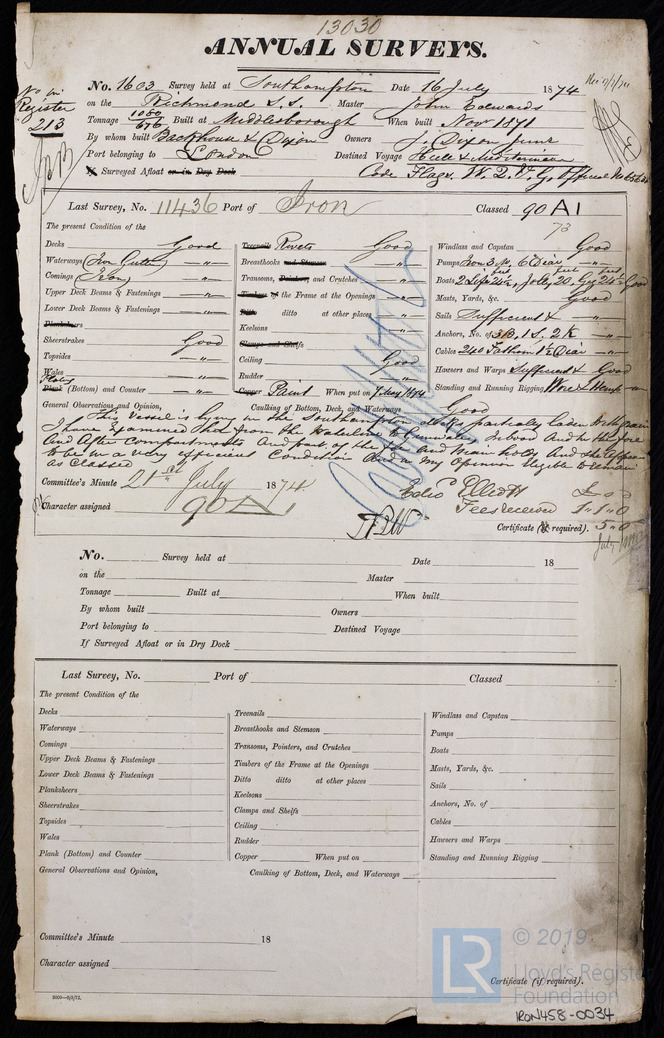 13030
ANNUAL SURVEYS.
No. 1603 Survey held at Southampton Date 16 July 1874
No in Register 213
on the Richmond S.S. Master John Edwards
Tonnage 1050 / 676 Built at Middlesborough When built Novr 1871
By whom built Backhouse & Dixon Owners J. Dixon Junr
Port belonging to London Destined Voyage Hull &
If Surveyed Afloat or in Dry Dock Code Flags. W. D. V. G. Official No
Last Survey, No. 11436 Port of Iron Classed 90 A1
73
The present Condition of the
Decks Good
Waterways (Iron Gutter) "
Comings (Iron) "
Upper Deck Beams & Fastenings "
Lower Deck Beams & Fastenings "
Planksheers
Sheerstrakes Good
Topsides "
Wales "
Plates Plank (Bottom) and Counter "
Treenails Rivets Good
Breasthooks and Stemson "
Transoms, Pointers, and Crutches "
Timbers of the Frame at the Openings "
Ditto ditto at other places "
Keelsons "
Clamps and Shelfs
Ceiling Good
Rudder "
Copper Paint When put on 7 May 1874
Windlass and Capstan Good
Pumps Iron 3 M, 6 Diar "
Boats 2 Life 24 feet, Jolly 20 feet Gig 24 feet Good
Masts, Yards, &c. Good
Sails Sufficient & "
Anchors, No. of 3B, 1S, 2K "
Cables 240 Fathom 1½ Diar "
Hawsers and Warps Sufficient & Good
Standing and Running Rigging Wire & Hemp "
General Observations and Opinion, Caulking of Bottom, Deck, and Waterways Good
This vessel is lying in the Southampton docks partially laden with grain
I have Examined her from the Waterline to Gunwale, Inboard And in the fore
And After Compartments And part of the fore and Main holds And she Appears
to be in a very efficient Condition And in my Opinion Eligible to remain
as Classed
Committee's Minute 21st July 1874
Character assigned 90 A1
Elliott
£ s d
Fees received 1 " 1 " 0
Certificate (if required). 5 " 0
No. Survey held at Date 18
on the Master
Tonnage Built at When built
By whom built Owners
Port belonging to Destined Voyage
If Surveyed Afloat or in Dry Dock
Last Survey, No. Port of Classed
The present Condition of the
Decks
Waterways
Comings
Upper Deck Beams & Fastenings
Lower Deck Beams & Fastenings
Planksheers
Sheerstrakes
Topsides
Wales
Plank (Bottom) and Counter
Treenails
Breasthooks and Stemson
Transoms, Pointers, and Crutches
Timbers of the Frame at the Openings
Ditto ditto at other places
Keelsons
Clamps and Shelfs
Ceiling
Rudder
Copper When put on
Windlass and Capstan
Pumps
Boats
Masts, Yards, &c.
Sails
Anchors, No. of
Cables
Hawsers and Warps
Standing and Running Rigging
General Observations and Opinion, Caulking of Bottom, Deck, and Waterways
Committee's Minute 18
Character assigned
Certificate (if required).
LR © 2019
Lloyd's Register
Foundation
IRON458-0034